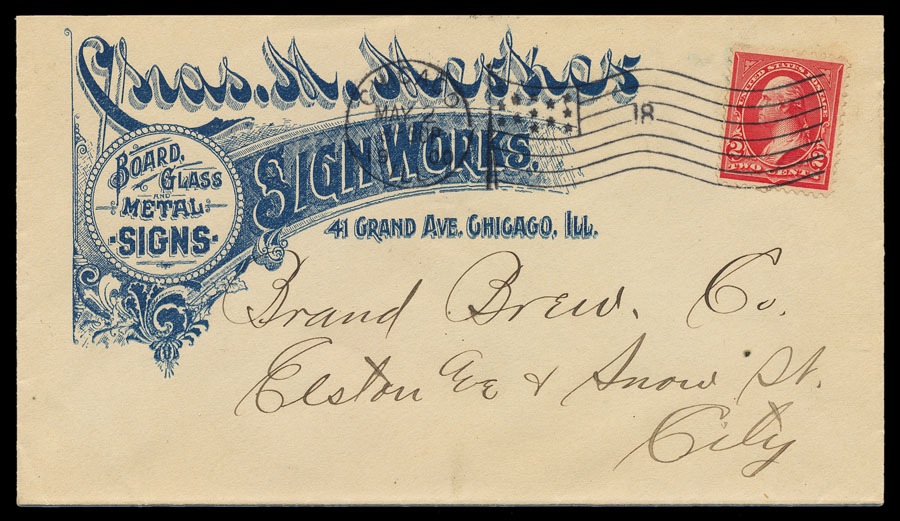 Chas. M.
SIGN WORKS.
BOARD,
GLASS
AND
METAL
SIGNS
41 GRAND AVE. CHICAGO, ILL.
CHICAGO
MAY 2
18
UNITED STATES POSTAGE
2 2
TWO CENTS
Brand Brew. Co.
Elston Ave & Snow St.
City